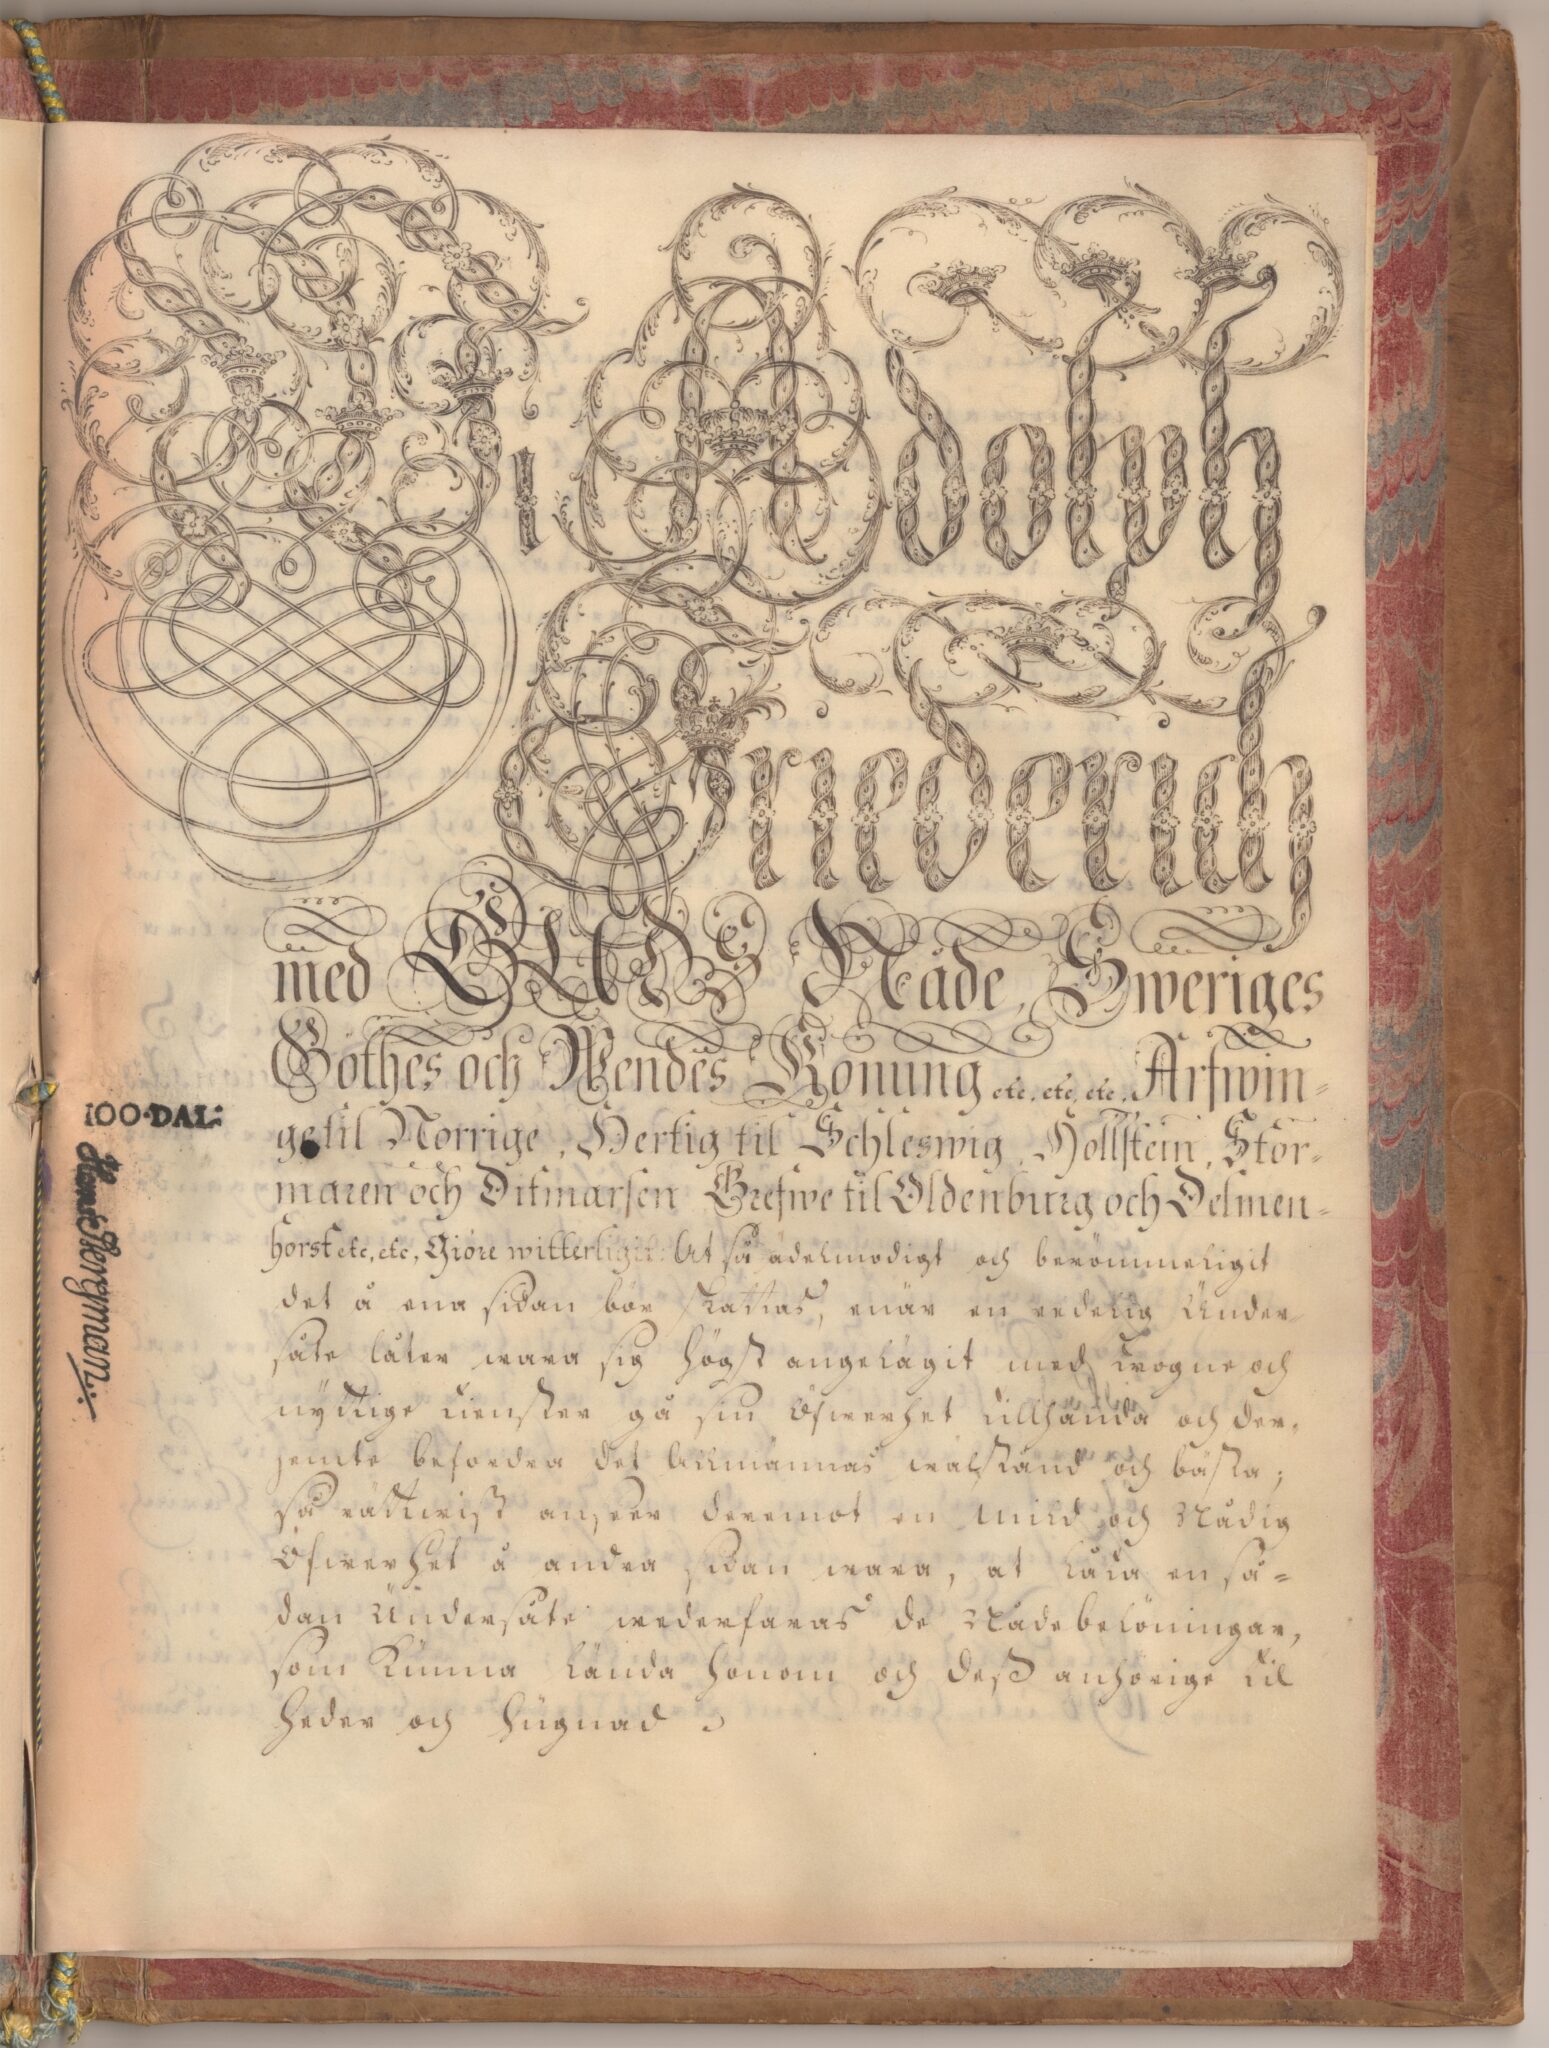 Wi Adolph
Friederich
med GUDS Nåde, Sweriges
Göthes och Wendes Konung etc. etc. etc. Arfwin-
ge til Norrige, Hertig til Schleswig, Hollstein, Stor-
maren och Ditmarsen Grefwe til Oldenburg och Delmen-
horst etc, etc, Giöre witterligit: At så ädelmodigt och berömmeligit
det å ena sidan bör skattas, enär en redelig Under-
såte låter wara sig högst angelägit med trogne och
nyttige tienster gå sin Öfwerhet tillhanda och der-
jemte befordra det Allmännas wälstånd och bästa;
så rättwist anseer deremot en mild och Nådig
Öfwerhet å andra sidan wara, at låta en så-
dan Undersåte wederfaras de Nådebelöningar,
som kunna lända honom och dess anhörige til
heder och hugnad
100·DAL: